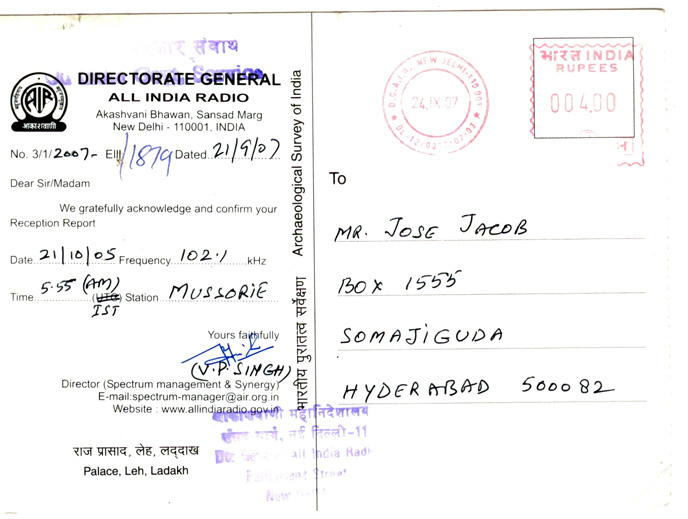 संवाथ
Service
DIRECTORATE GENERAL
ALL INDIA RADIO
AIR
आकाशवाणी
Akashvani Bhawan, Sansad Marg
New Delhi - 110001, INDIA
No. 3/1/2007- EIII/1879 Dated 21/9/07
Dear Sir/Madam
We gratefully acknowledge and confirm your
Reception Report
Date 21/10/05 Frequency 102.1 kHz
Time 5.55 (AM) (UTC) Station MUSSORIE
IST
Yours faithfully
(V.P. SINGH)
Director (Spectrum management & Synergy)
E-mail:spectrum-manager@air.org.in
Website : www.allindiaradio.gov.in
राज प्रासाद, लेह, लद्दाख
Palace, Leh, Ladakh
महानिदेशालय
नई दिल्ली-11
All India Radi
Street
New
Archaeological Survey of India
भारतीय पुरातत्व सर्वेक्षण
NEW DELHI-110 001
24.IX.07
भारत INDIA
RUPEES
004.00
To
MR. JOSE JACOB
BOX 1555
SOMAJIGUDA
HYDERABAD 500082